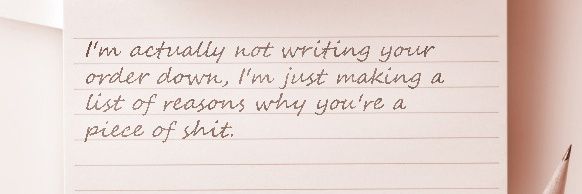 I'm actually not writing your
order down, I'm just making a
list of reasons why you're a
piece of shit.